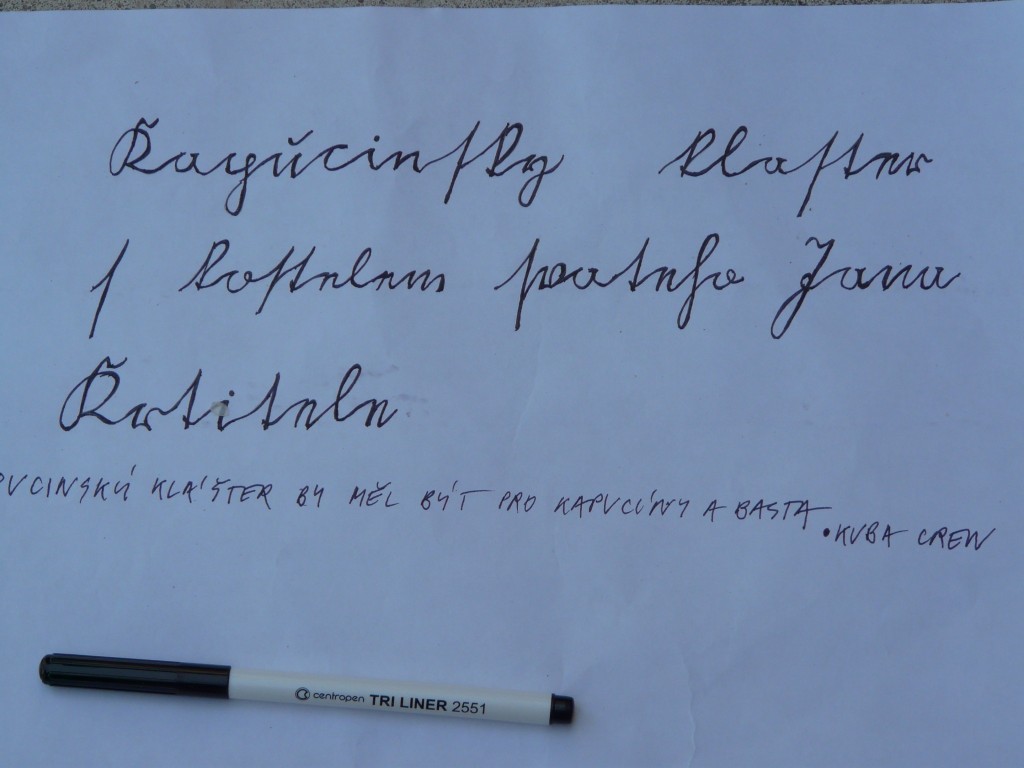 Kapucinsky klaster
s kostelem svateho Jana
Krtitele
PUCINSKÝ KLÁŠTER BY MĚL BÝT PRO KAPUCÍNY A BASTA
•KUBA CREW
centropen TRI LINER 2551